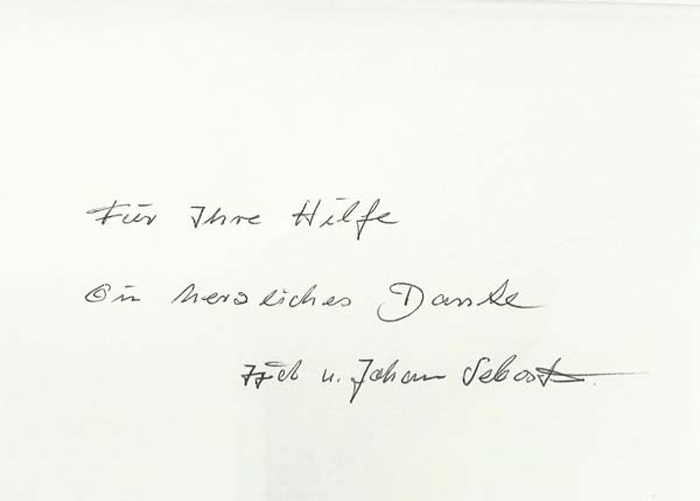 Für Ihre Hilfe
ein herzliches Danke
u. Johann